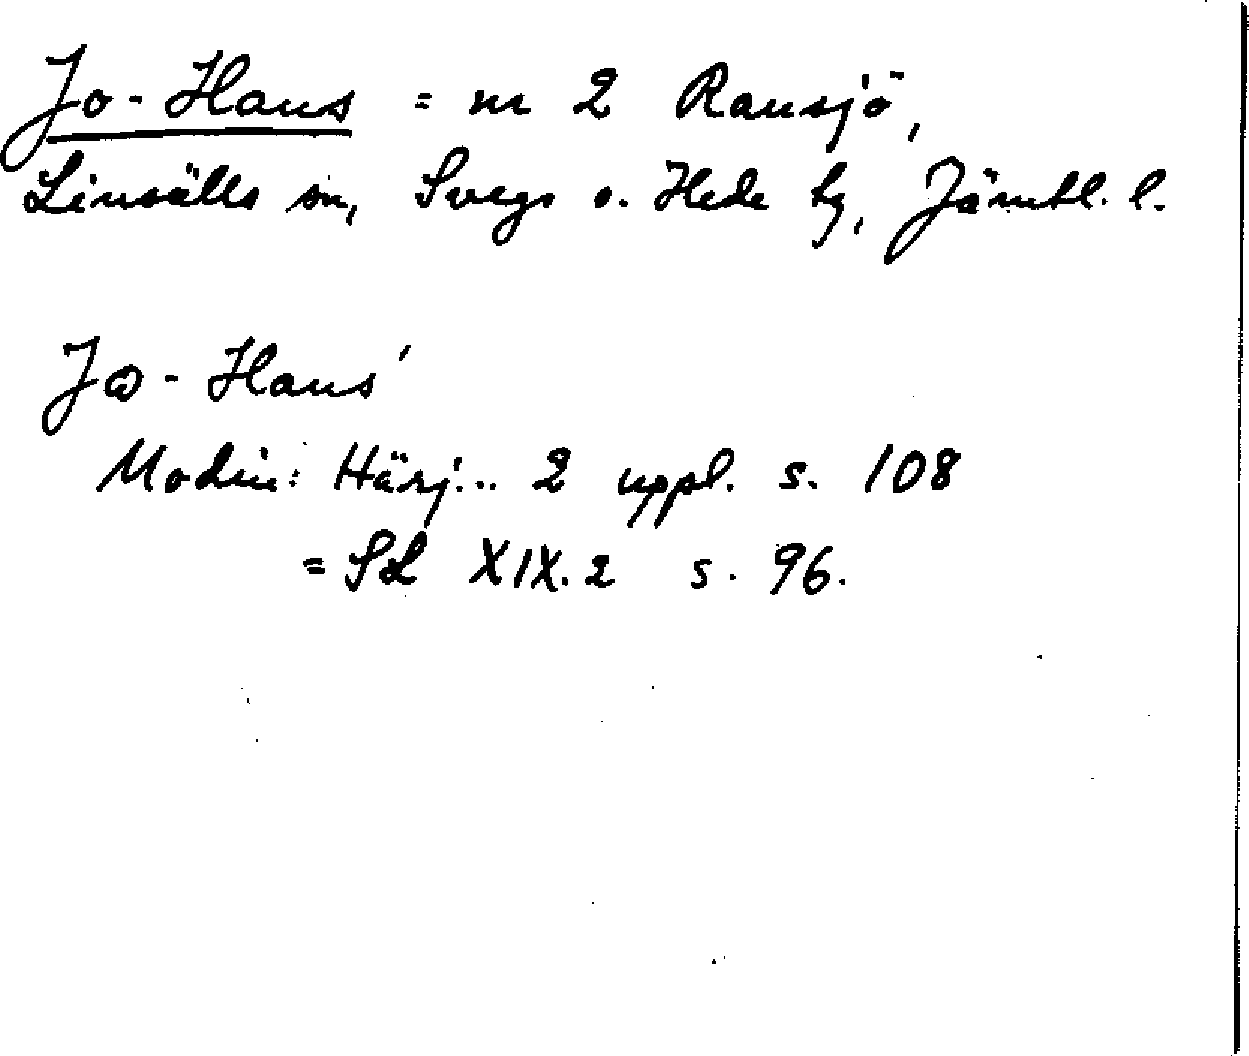 Jo-Hans = nr 2 Ransjö,
Linsälls sn, Svegs o. Hede tg, Jämtl. l.
Jω-Hans'
Modin: Härj... 2 uppl. s. 108
= SL XIX.2 s. 96.